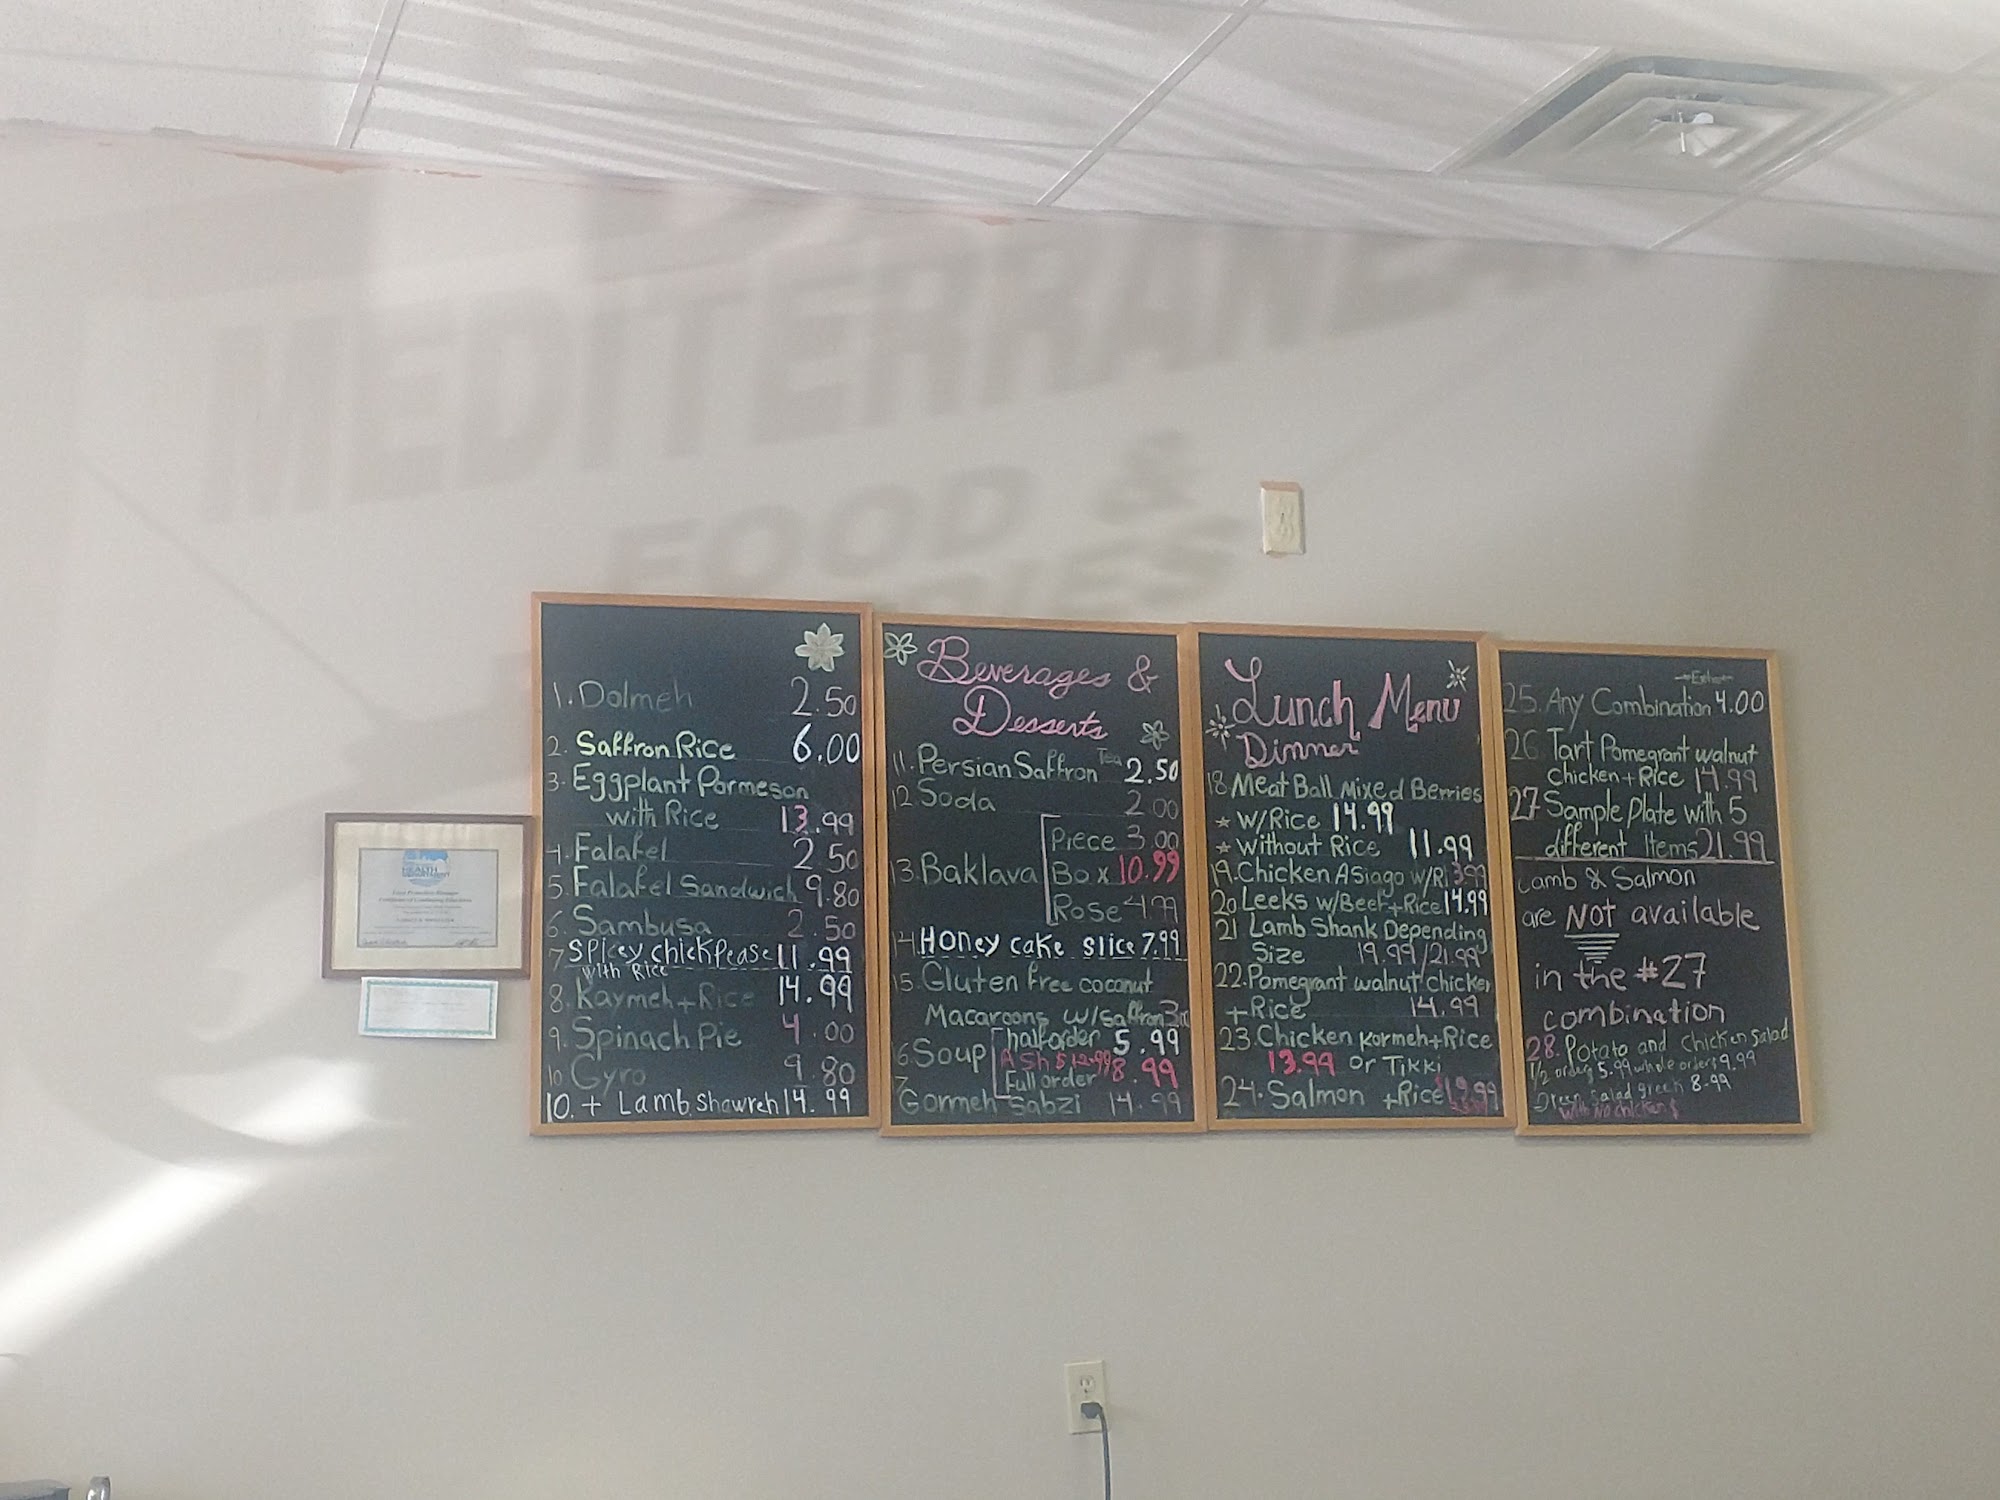 MEDITERRANEA
FOOD &
HEALTH
DEPARTMENT
1. Dolmeh 2.50
2. Saffron Rice 6.00
3. Eggplant Parmesan
with Rice 13.99
4. Falafel 2.50
5. Falafel Sandwich 9.80
6. Sambusa 2.50
7 Spicey chickpease 11.99
with Rice
8. Kaymeh + Rice 14.99
9. Spinach Pie 4.00
10 Gyro 9.80
10. + Lamb Shawreh 14.99
Beverages &
Desserts
11. Persian Saffron Tea 2.50
12 Soda 2.00
Piece 3.00
13. Baklava Box 10.99
Rose 4.99
14. Honey cake slice 7.99
15. Gluten free coconut
Macaroons w/saffron
half order 5.99
16 Soup ASh $12.99 8.99
Full order
Gormeh Sabzi 14.99
Lunch Menu
Dinner
18 Meat Ball Mixed Berries
* w/Rice 14.99
* without Rice 11.99
19. Chicken Asiago w/Ri 13.99
20 Leeks w/Beef + Rice 14.99
21 Lamb Shank Depending
Size 19.99/21.99
22. Pomegrant walnut chicken
+ Rice 14.99
23. Chicken Kormeh + Rice
13.99 or Tikki
24. Salmon + Rice 19.99
Extra
25. Any Combination 4.00
26 Tart Pomegrant walnut
chicken + Rice 14.99
27 Sample Plate with 5
different Items 21.99
Lamb & Salmon
are NOT available
in the #27
combination
28. Potato and Chicken Salad
1/2 order 5.99 whole orders 9.99
Green Salad green 8.99
with no chicken $